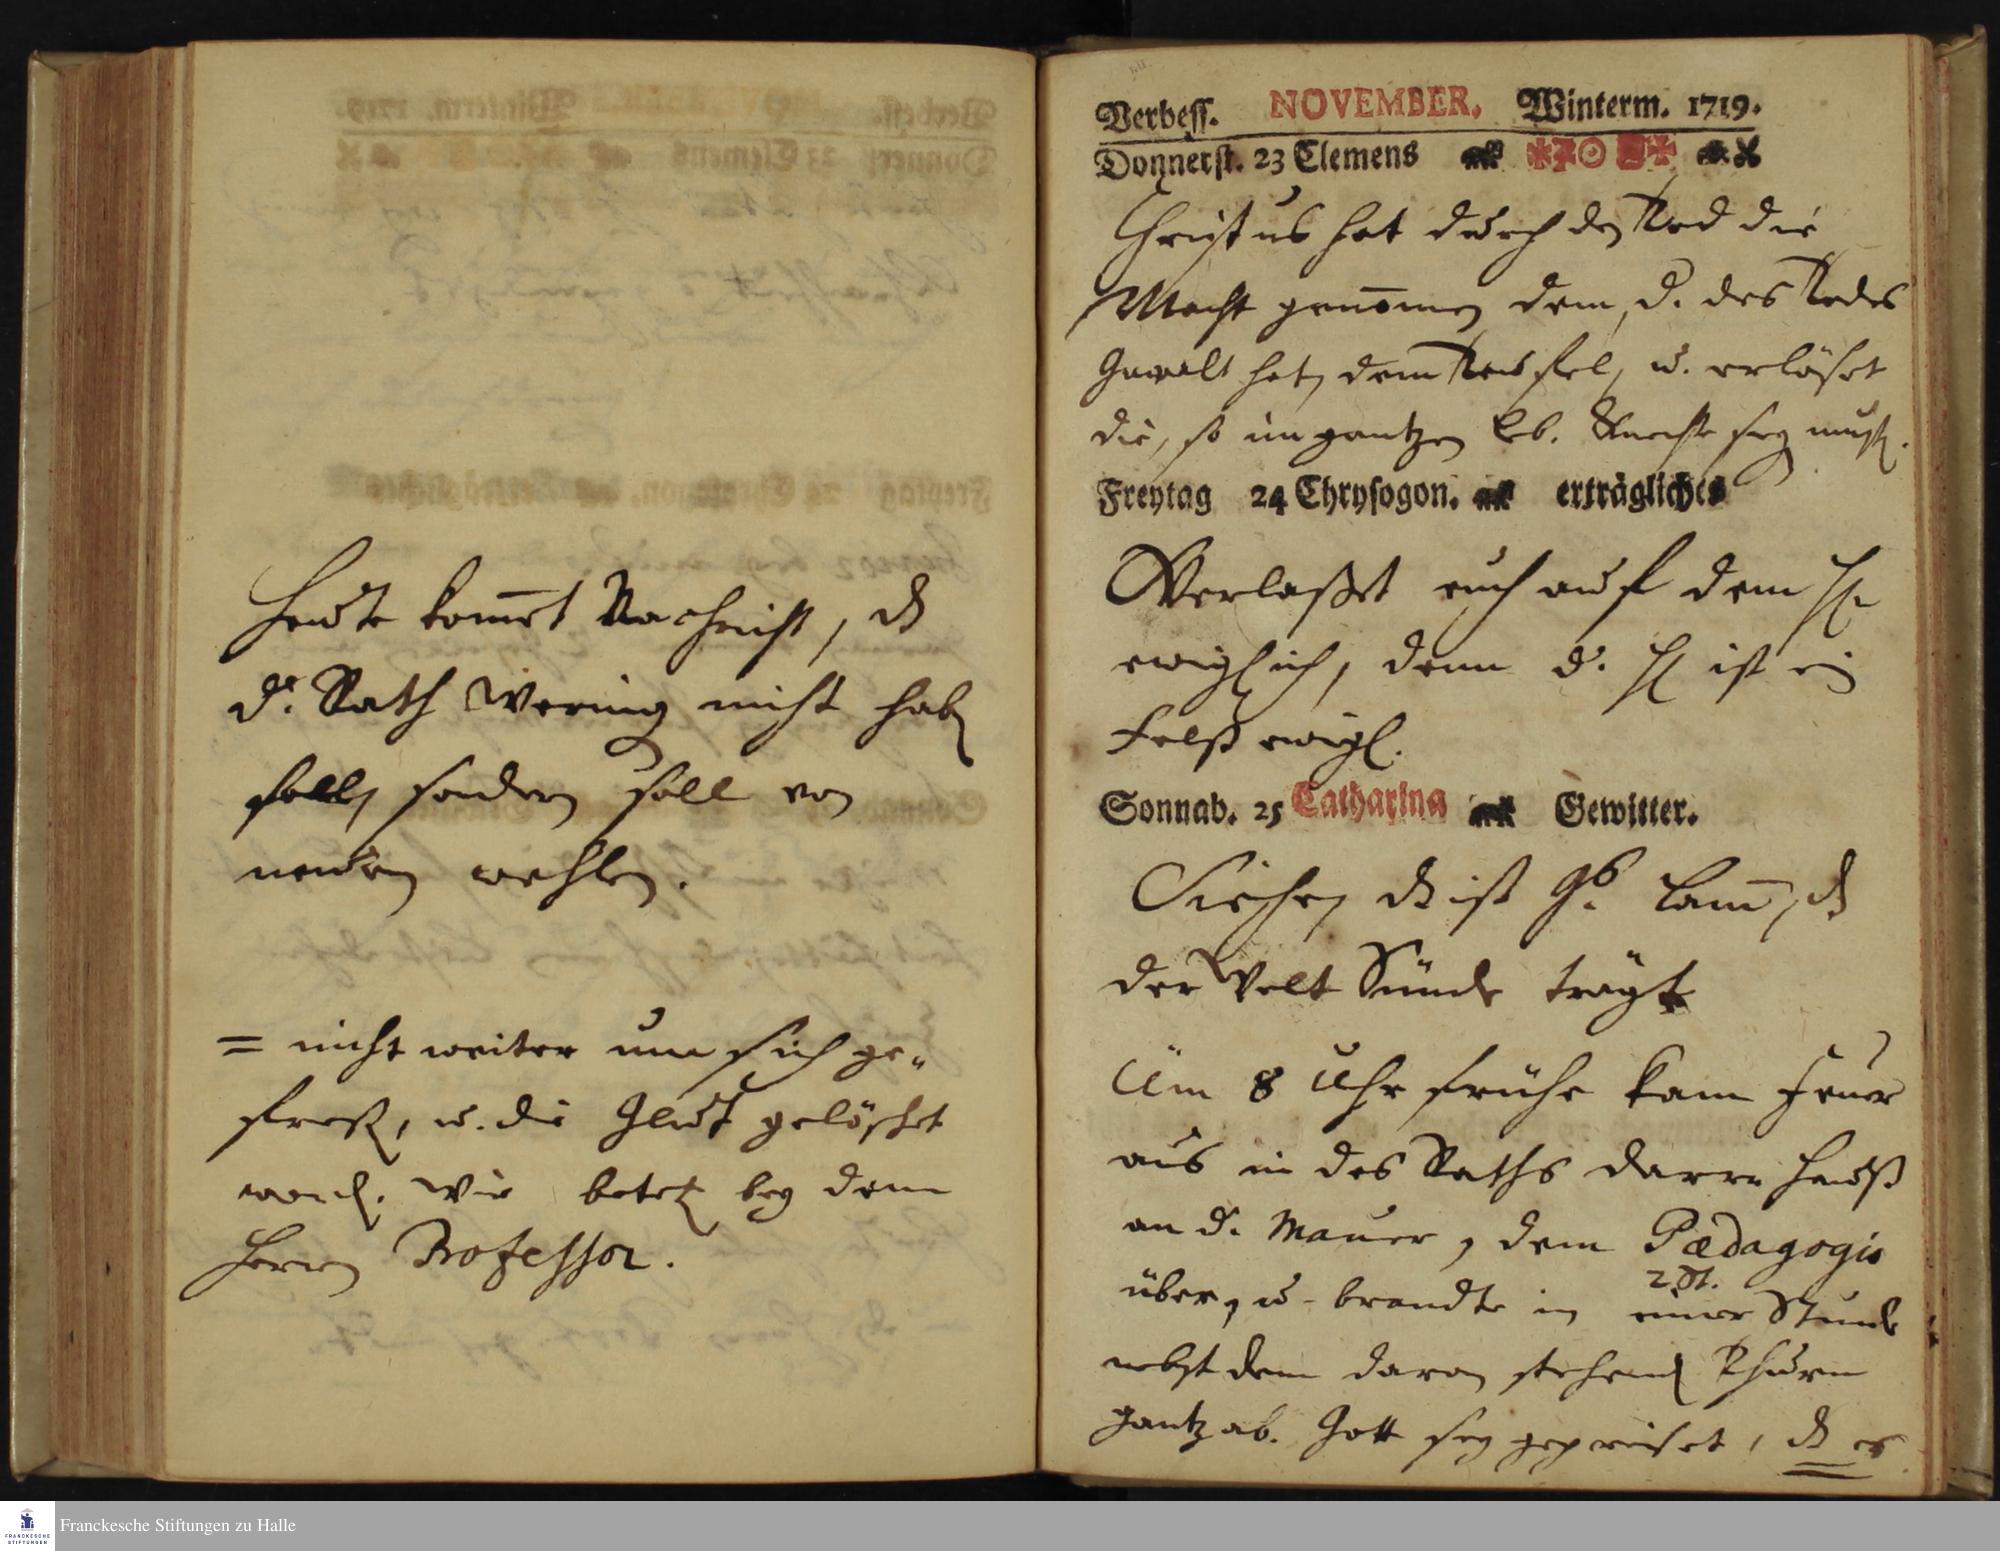 Heute kom̅et Nachricht, dß
dr. Rath Wering nicht habē
sollē sondern soll von
neuem wehlen.
= nicht weiter um sich ge„
freßē, u. die Glut gelöschet
word. Wir betetē bey dem
Herrn Professor.
Verbess. NOVEMBER. Winterm. 1719.
Donnerst. 23 Clemens
Christus hat durch den Tod die
Macht genom̅en dem, d. des Todes
Gewalt hat, dem Teufel, u. erlöset
die, so im gantzen Leb. Knechte seyn must.
Freytag 24 Chrysogon. erträgliches
Verlaßet euch auf dem H.
ewiglich, denn d. H ist ein
Felß ewigl.
Sonnab. 25 Catharina Gewitter.
Siehe, dz ist G. Lam̅, dß
der Welt Sünde trägt
Um 8 Uhr frühe kam Feuer
aus in des Raths darre Hauß
an d. Mauer, dem Pædagogio
2 St.
über, u. brandte in einer Stunde
nebst dem daran stehend Thurm
gantz ab. Gott sey gepreiset, dß er
Franckesche Stiftungen zu Halle
FRANCKESCHE
STIFTUNGEN